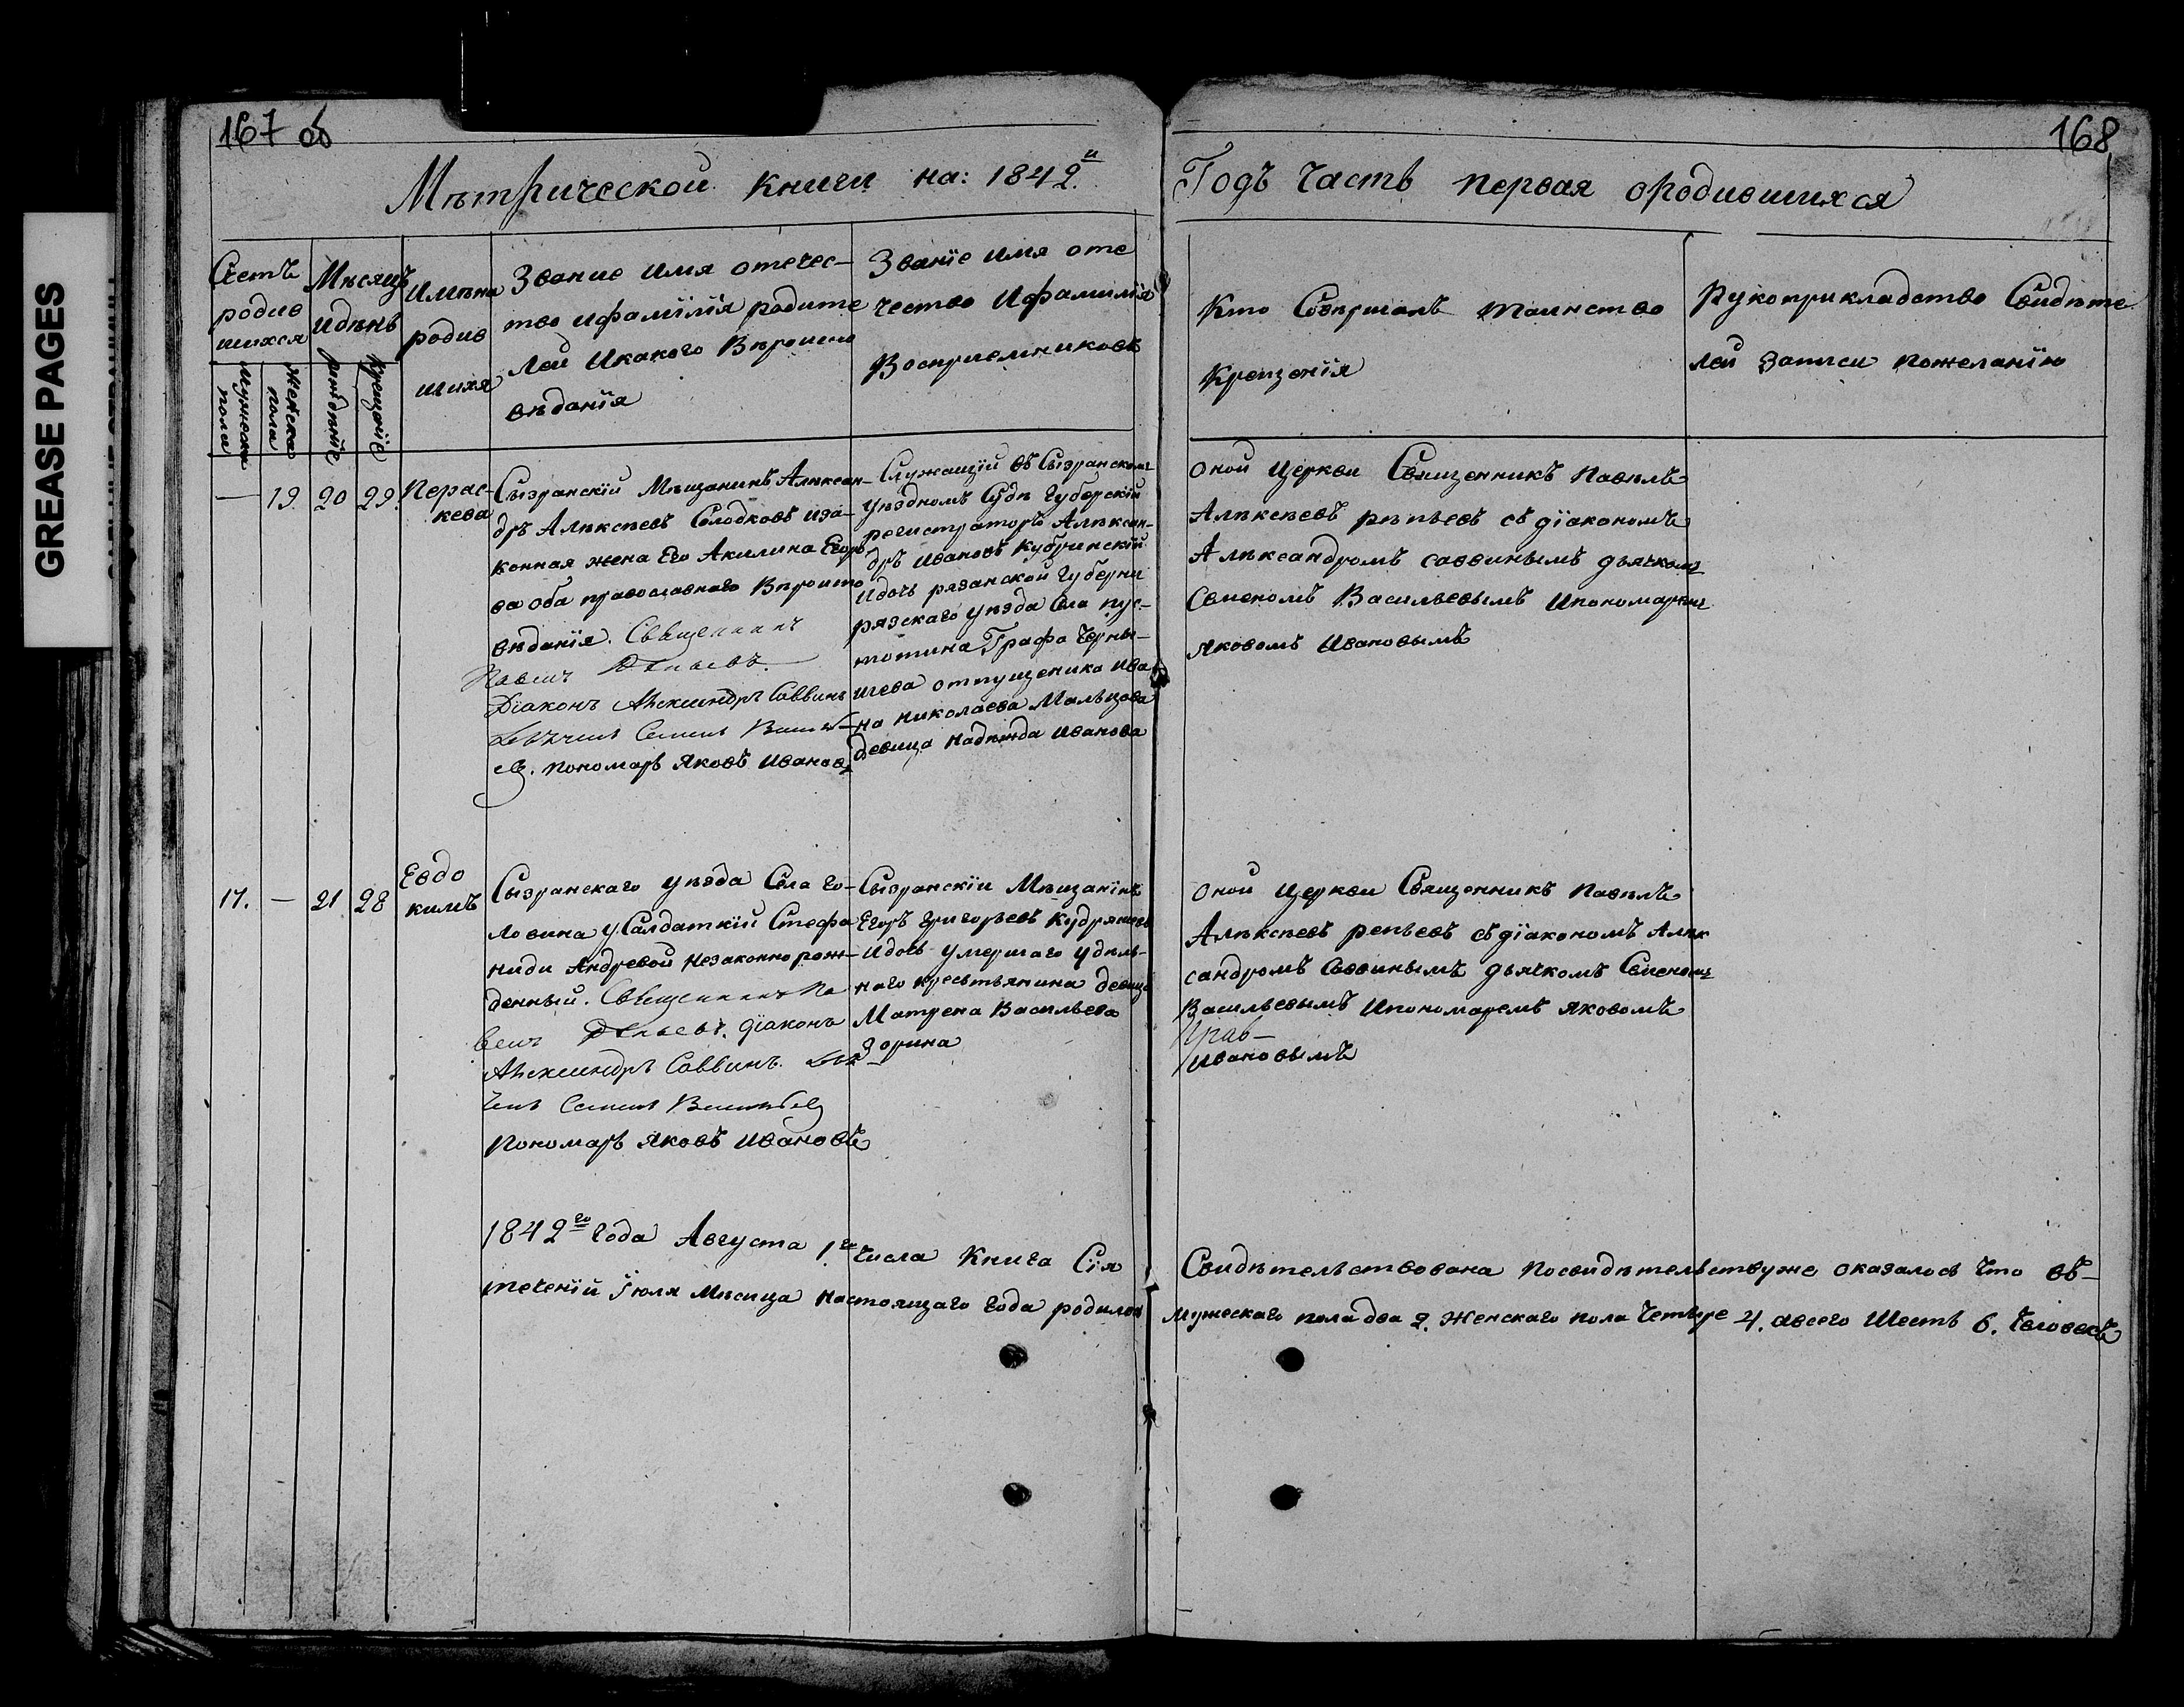 GREASE PAGES
167 об
168
Мѣтрической книги на: 1842.й
Годъ Часть первая ородившихся
Счетъ
родив
шихся
Мѣсяцъ
идѣнь
Имѣна
родив
шихся
Звание имя отечес-
тво ифамїлїя родите
лей Икакого Вѣроиспо
вѣданїя
Званїе имя оте
чество Ифамилїя
Воспрïемниковъ
Кто Совѣршалъ таинство
Крещенїя
Рукоприкладство Свидѣте
лей записи пожеланїю
мужеска
пола
женска
пола
рождѣнїе
крещенїе
— 19. 20 29. Перас-
кева
Сызранскїй Мѣщанинъ Алѣксан-
дръ Алѣксѣевъ Солодковъ иза-
конная жена Его Акилина Егоро
ва оба православнаго Вѣроиспо
вѣданїя. Священникъ
Павелъ Рѣпьевъ.
Дїаконъ Александръ Саввинъ
Дьячекъ Семенъ Василь-
евъ. пономарь Яковъ Ивановъ
Служащїй въ Сызранскомъ
уѣздномъ Судѣ Губерскїй
регистраторъ Алѣксан-
дръ Ивановъ Кудринскїй
Идочь рязанской Губерни
ряжскаго уѣзда Села пус-
тотина Графа Черны-
шева отпущеника Ива
на Николаева Мальцова
девица Надѣжда Иванова
Оной Церкви Священникъ Павѣлъ
Алѣксѣевъ рѣпьевъ съ дїакономъ
Алѣксандромъ саввинымъ дьячкомъ
Семеномъ Васильевымъ Ипономаремъ
Яковомъ Ивановымъ
17. — 21 28 Евдо
кимъ
Сызранскаго уѣзда Села Го-
ловина у Салдаткїй Стефа
ниди Андревой Незаконно рож-
денный. Священникъ Па
велъ Рѣпьевъ. дїаконъ
Александръ Саввинъ. Дья
чекъ Семенъ Васильевъ
Пономарь Яковъ Ивановъ
Сызранскїи Мѣщанїнъ
Егоръ Григорьевъ Кудряшовъ
Идочь умершаго удѣль-
наго кресьтьянина девица
Матрена Васильева
Зорина
Оной Церкви Священникъ Павѣлъ
Алѣксѣевъ репьевъ съ дїакономъ Алѣк
сандромъ Саввинымъ дьячкомъ Семеномъ
Васильевымъ Ипономаремъ Яковомъ
Ивановымъ
1842го года Августа 1.го Числа Книга Сїя Свидѣтельствована Посвидѣтельствуже оказалось Что въ-
течении Їюля Мѣсяца Настоящаго года родилось Мужескаго пола два 2. Женскаго пола Четыре 4. авсего Шесть 6. Человекъ